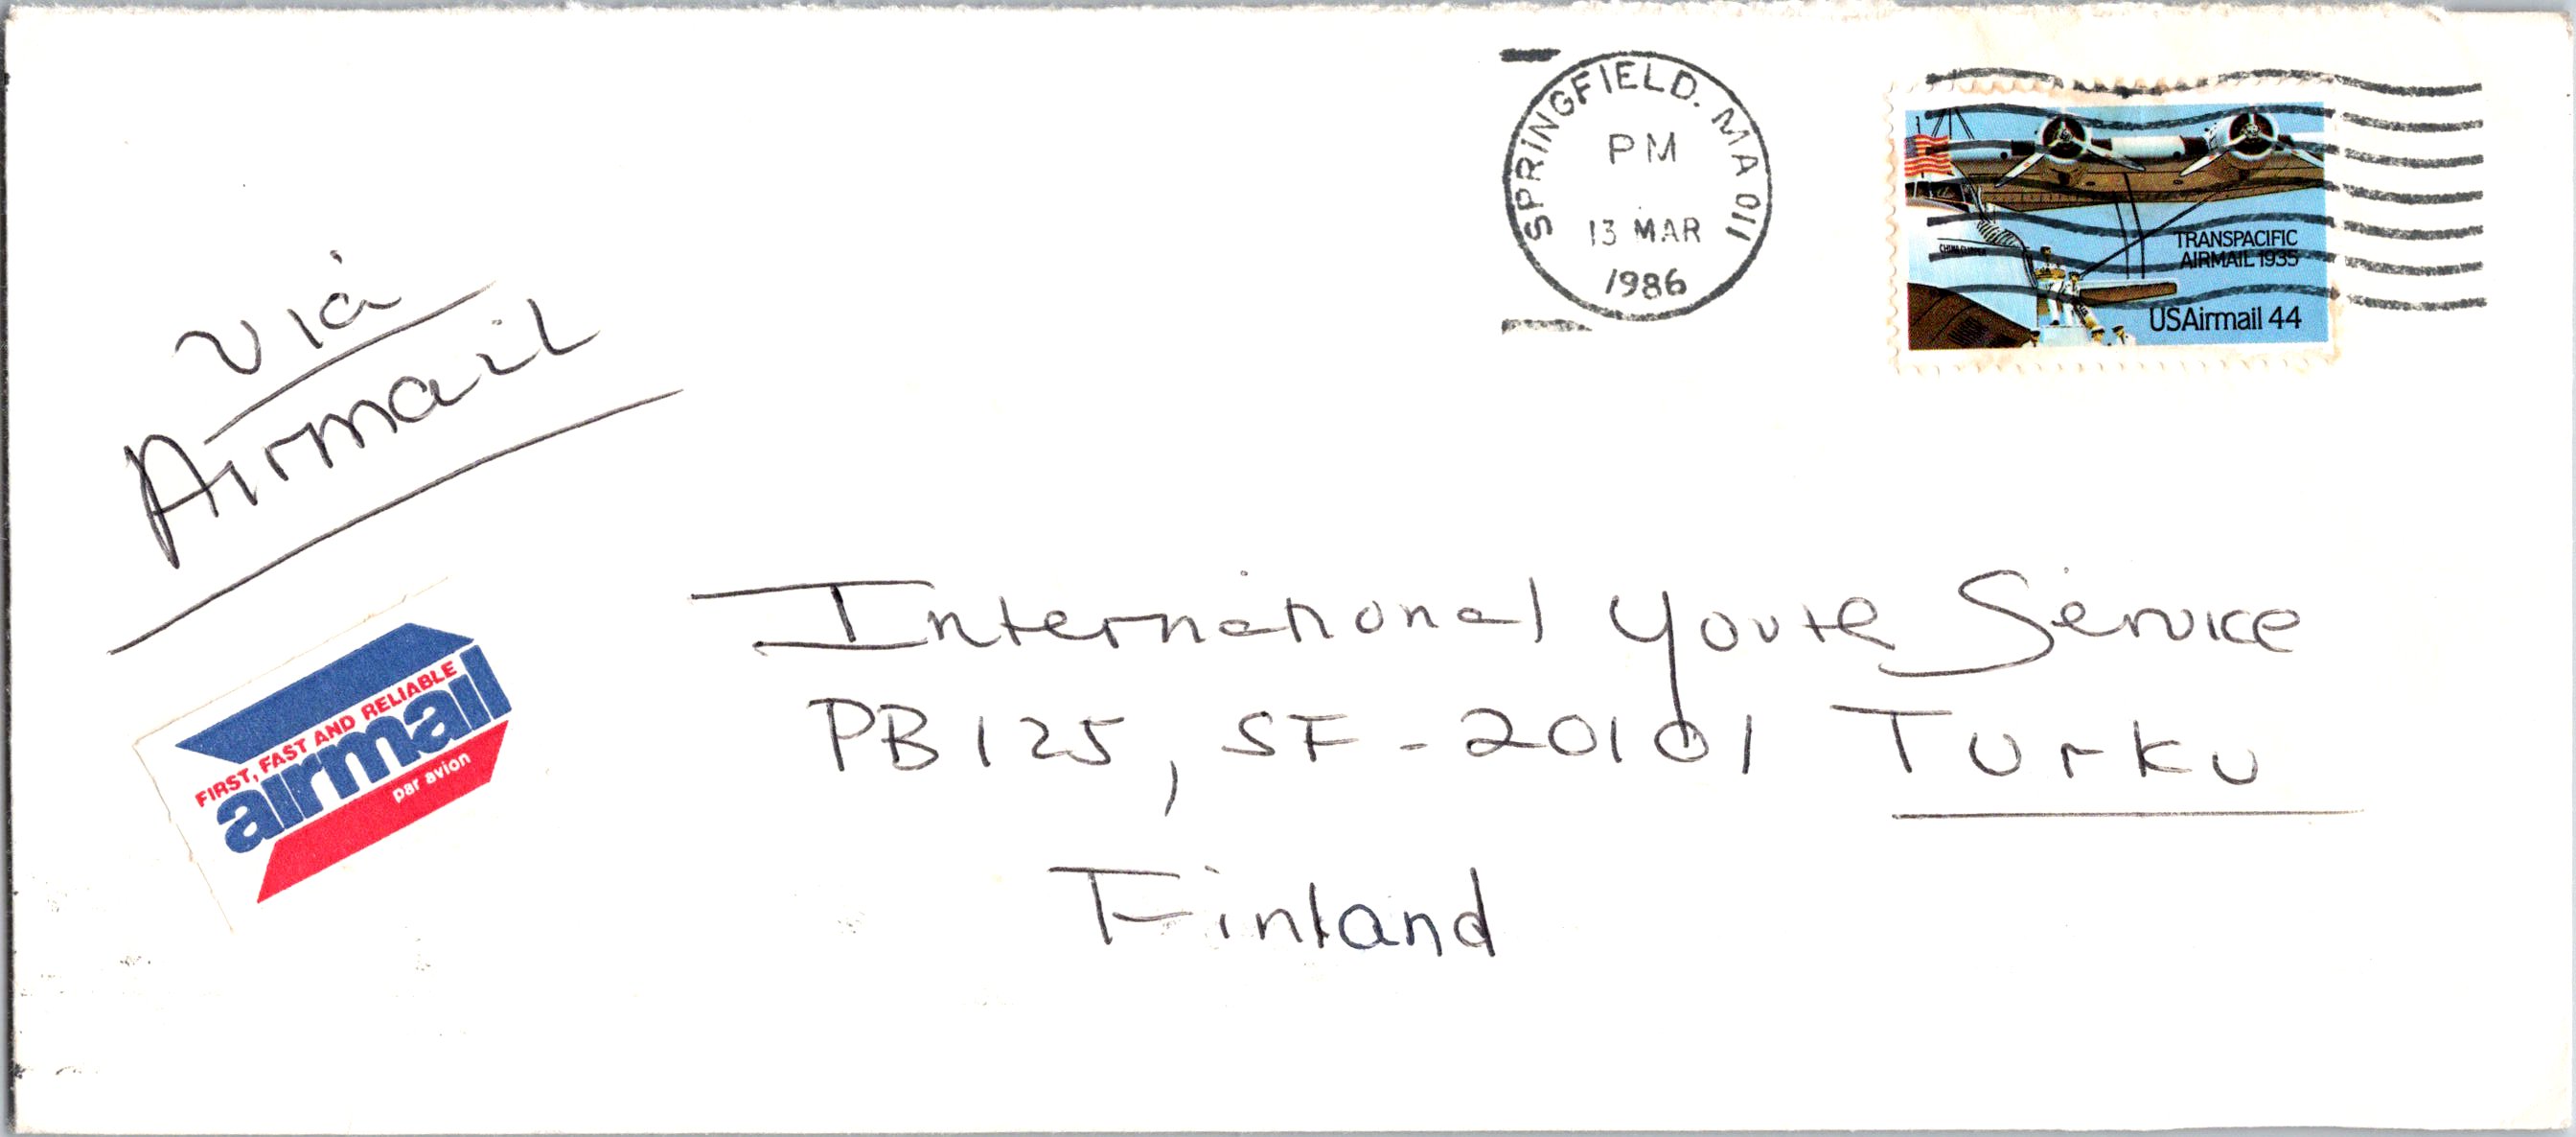 SPRINGFIELD. MA 011
PM
13 MAR
1986
CHINA CLIPPER
TRANSPACIFIC
AIRMAIL 1935
USAirmail 44
via
Airmail
FIRST, FAST AND RELIABLE
airmail
par avion
International Youth Service
PB 125, SF - 20101 Turku
Finland